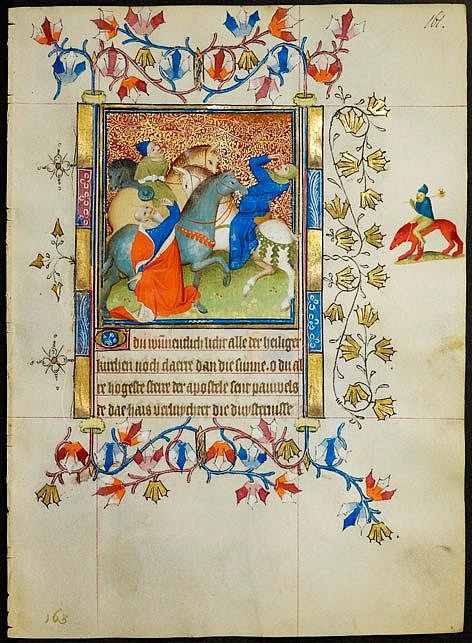 161.
O du wūnentlich licht alle der heiliger
kirchen noch claerre dan die sunne. o du al
re hogeste sterre der apostele sent pauwels
dae hais die duysternisse
163